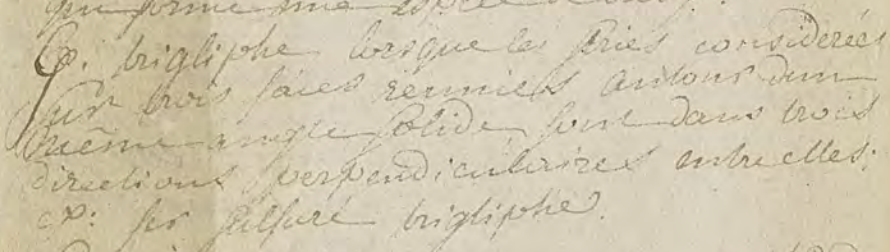 qui forme une espèce de
Q. trigliphe lorsque les stries considerées
sur trois faces réunies autour d'un
même angle solide sont dans trois
directions perpendiculaires entre elles.
ex: fer sulfuré trigliphe.